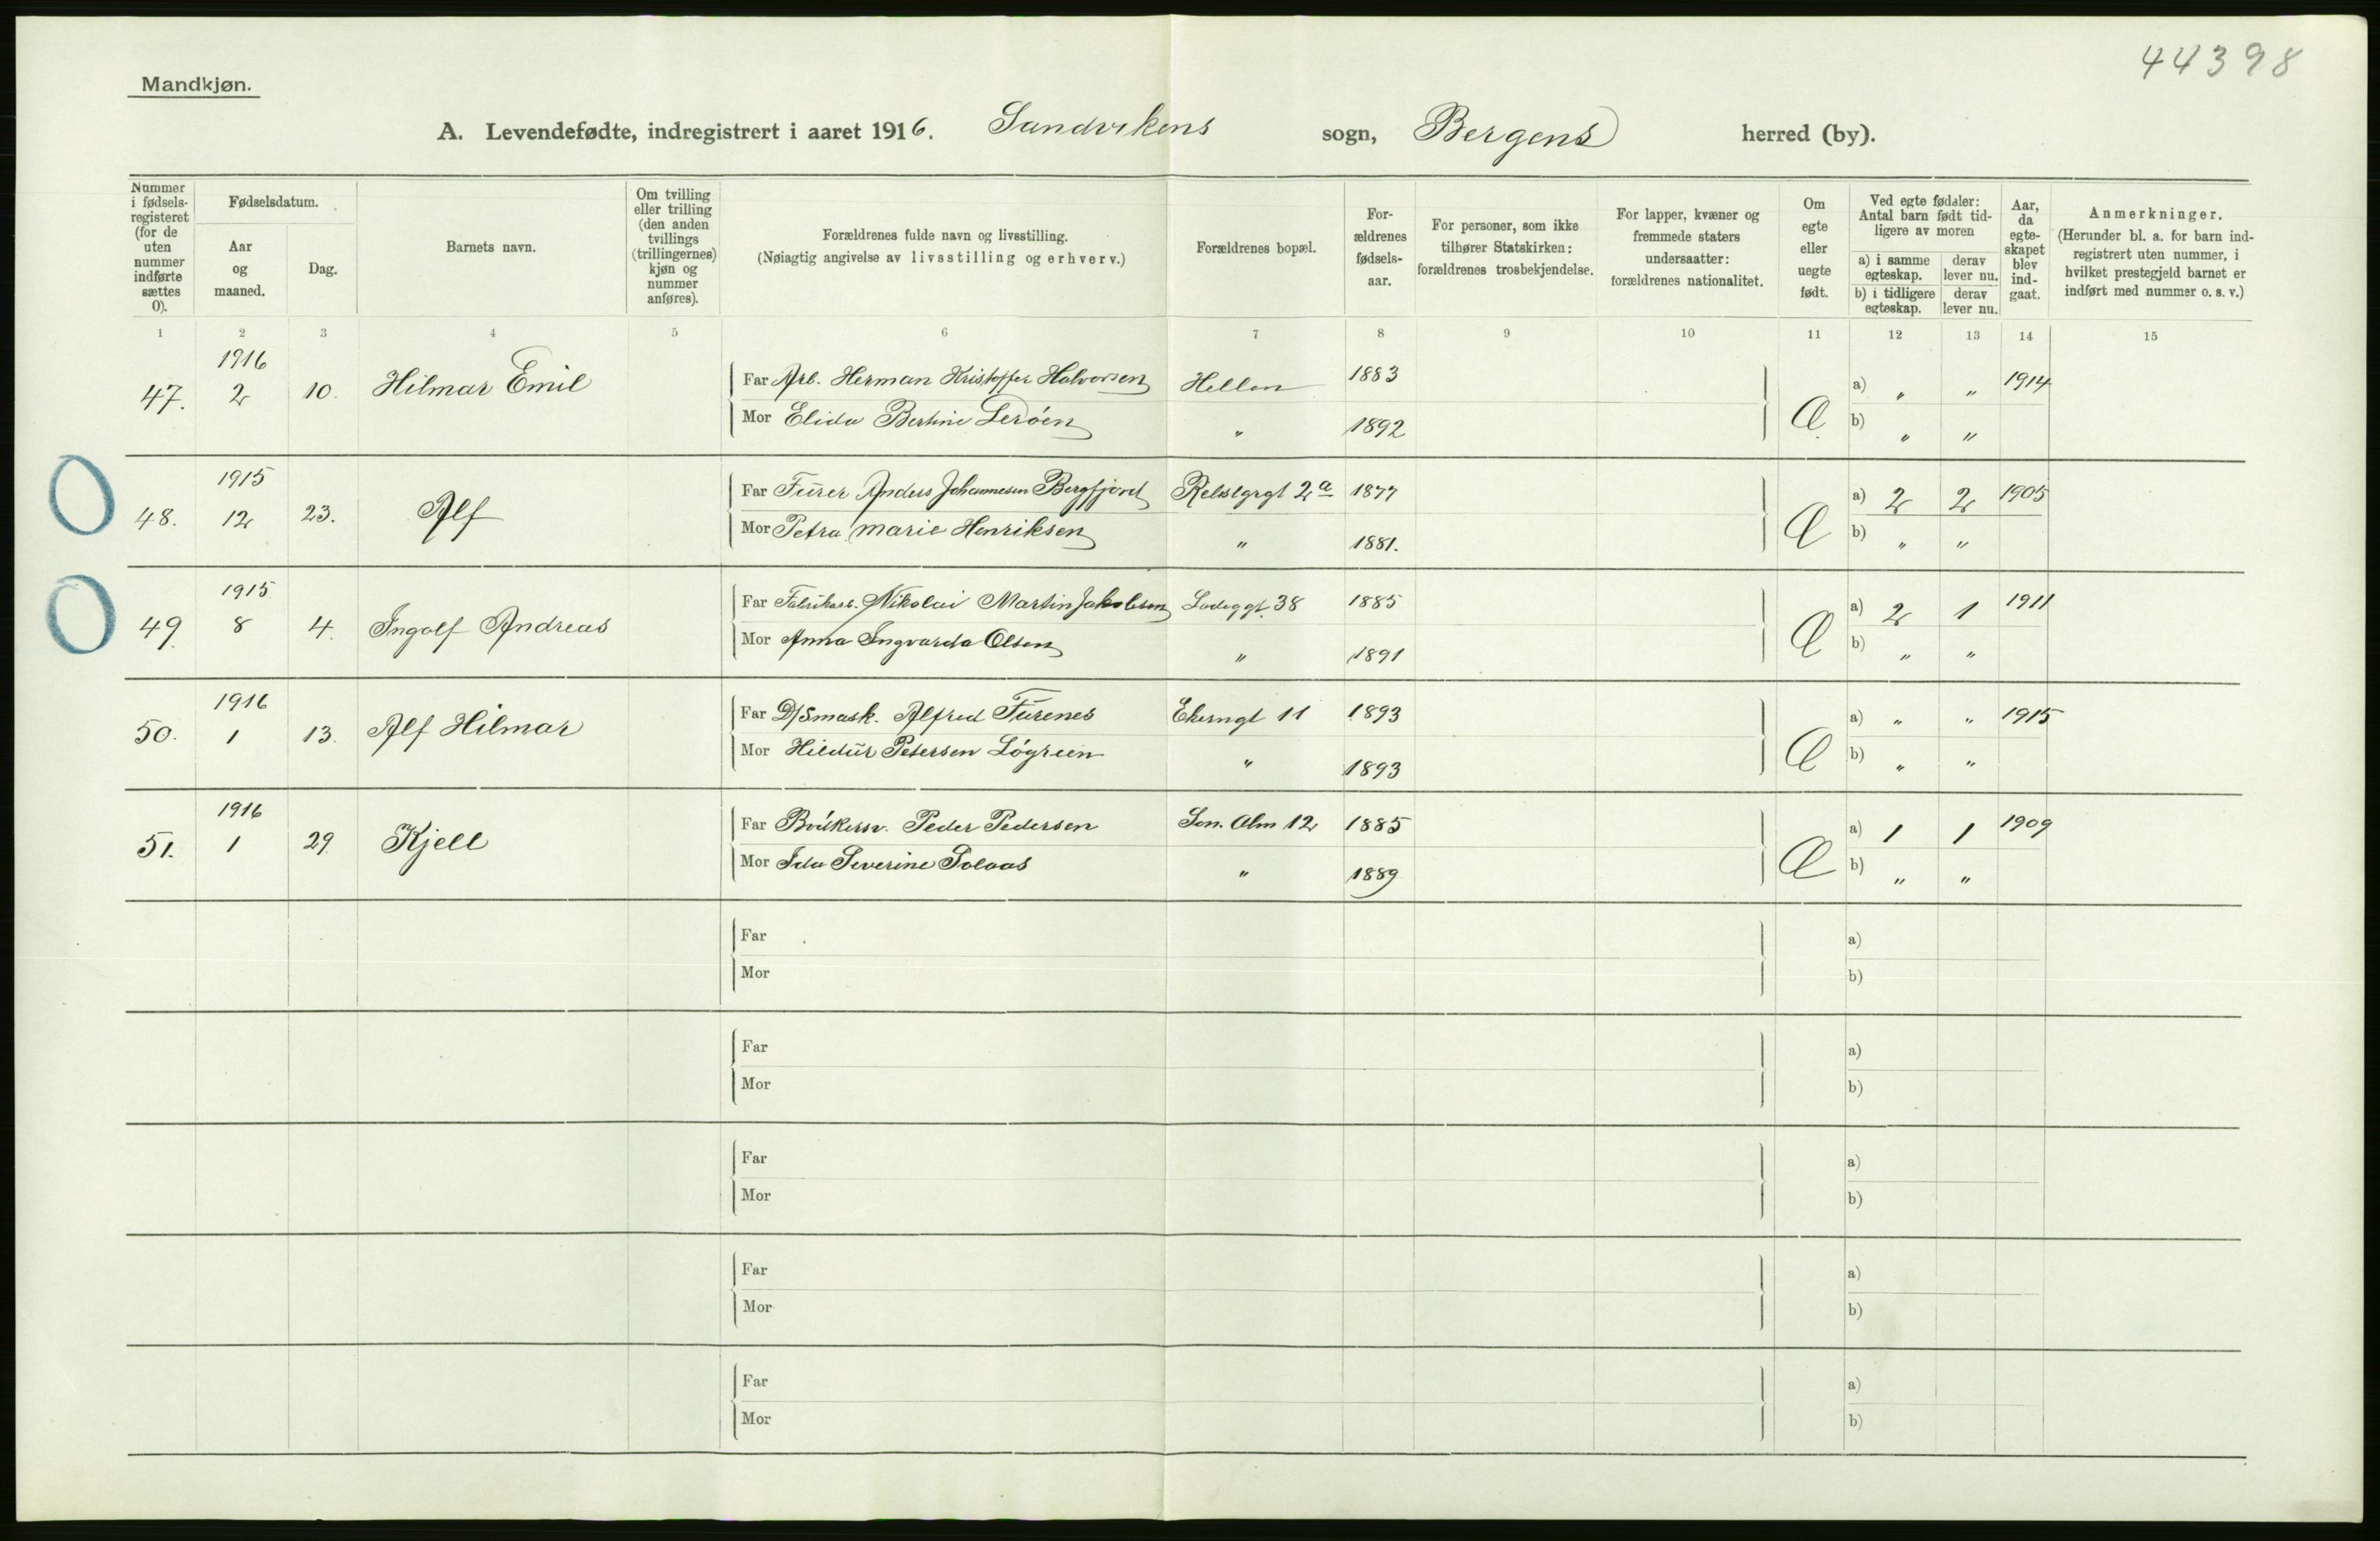 44398
Mandkjøn.
A. Levendefødte, indregistrert i aaret 1916. Sandvikens sogn, Bergens herred (by).
Nummer i fødsels-registeret (for de uten nummer indførte sættes 0).
Fødselsdatum.
Aar og maaned.
Dag.
Barnets navn.
Om tvilling eller trilling (den anden tvillings (trillingernes) kjøn og nummer anføres).
Forældrenes fulde navn og livsstilling.
(Nøiagtig angivelse av livsstilling og erhverv.)
Forældrenes bopæl.
For-ældrenes fødsels-aar.
For personer, som ikke tilhører Statskirken: forældrenes trosbekjendelse.
For lapper, kvæner og fremmede staters undersaatter: forældrenes nationalitet.
Om egte eller uegte født.
Ved egte fødsler: Antal barn født tid-ligere av moren
a) i samme egteskap.
derav lever nu.
b) i tidligere egteskap.
derav lever nu.
Aar, da egte-skapet blev ind-gaat.
Anmerkninger.
(Herunder bl. a. for barn ind-registrert uten nummer, i hvilket prestegjeld barnet er indført med nummer o. s. v.)
1 2 3 4 5 6 7 8 9 10 11 12 13 14 15
1916
47. 2 10. Hilmar Emil Far Arb. Herman Kristoffer Halvorsen Hellen 1883 Æ a) " " 1914
Mor Elida Bertine Lerøen " 1892 b) " "
1915
48. 12 23. Alf Far Fürer Anders Johannesen Bergfjord 2a 1877 Æ a) 2 2 1905
Mor Petra Marie Henriksen " 1881. b) " "
1915
49. 8 4. Ingolf Andreas Far Fabrikarb. Nikolai Martin Jakobsen Ladeggt. 38 1885 Æ a) 2 1 1911
Mor Anna Ingvarda Olsen " 1891 b) " "
1916
50. 1 13. Alf Hilmar Far D/Smask. Alfred Fürenes Ekerngt 11 1893 Æ a) " " 1915
Mor Hildür Petersen Løgreen " 1893 b) " "
1916
51. 1 29. Kjell Far Peder Pedersen Alm 12 1885 Æ a) 1 1 1909
Mor Ida Severine Solaas " 1889 b) " "
Far a)
Mor b)
Far a)
Mor b)
Far a)
Mor b)
Far a)
Mor b)
Far a)
Mor b)